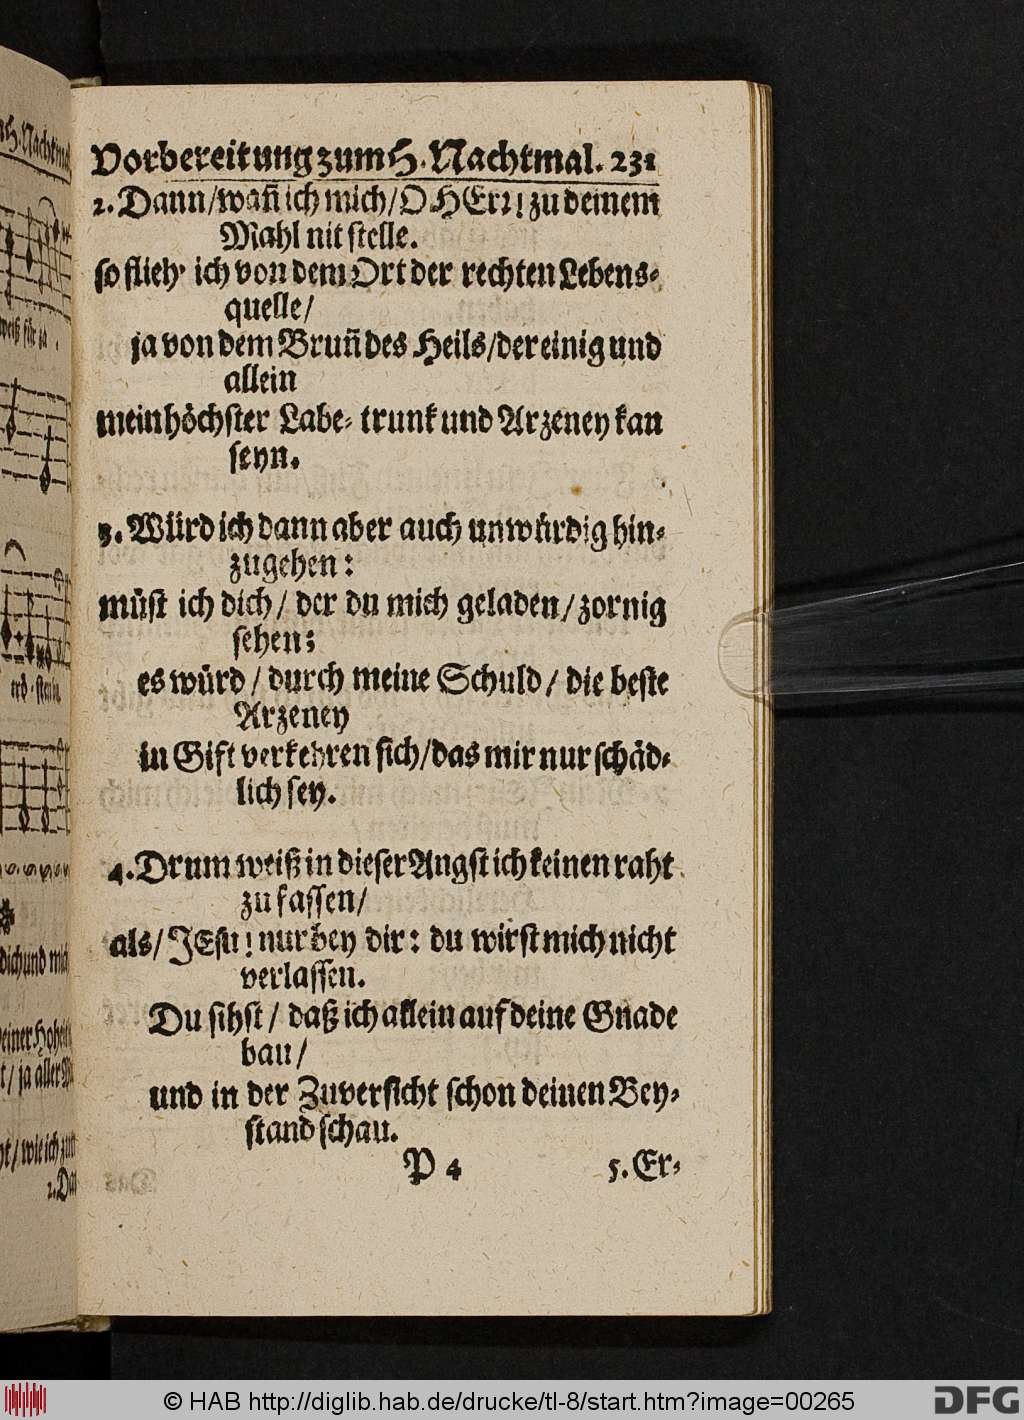 Vorbereitung zum H. Nachtmal. 231
2. Dann/wañ ich mich/O HErꝛ! zu deinem
Mahl nit stelle.
so flieh' ich von dem Ort der rechten Lebens-
quelle/
ja von dem Bruñ des Heils/der einig und
allein
mein höchster Labe-trunk und Arzeney kan
seyn.
3. Würd ich dann aber auch unwürdig hin-
zugehen:
müst ich dich/ der du mich geladen/zornig
sehen;
es würd/durch meine Schuld/ die beste
Arzeney
in Gift verkehren sich/das mir nur schäd-
lich sey.
4. Drum weiß in dieser Angst ich keinen raht
zu fassen/
als/JEsu! nur bey dir: du wirst mich nicht
verlassen.
Du sihst/ daß ich allein auf deine Gnade
bau/
und in der Zuversicht schon deinen Bey-
stand schau.
P 4
5. Er-
© HAB http://diglib.hab.de/drucke/tl-8/start.htm?image=00265
DFG